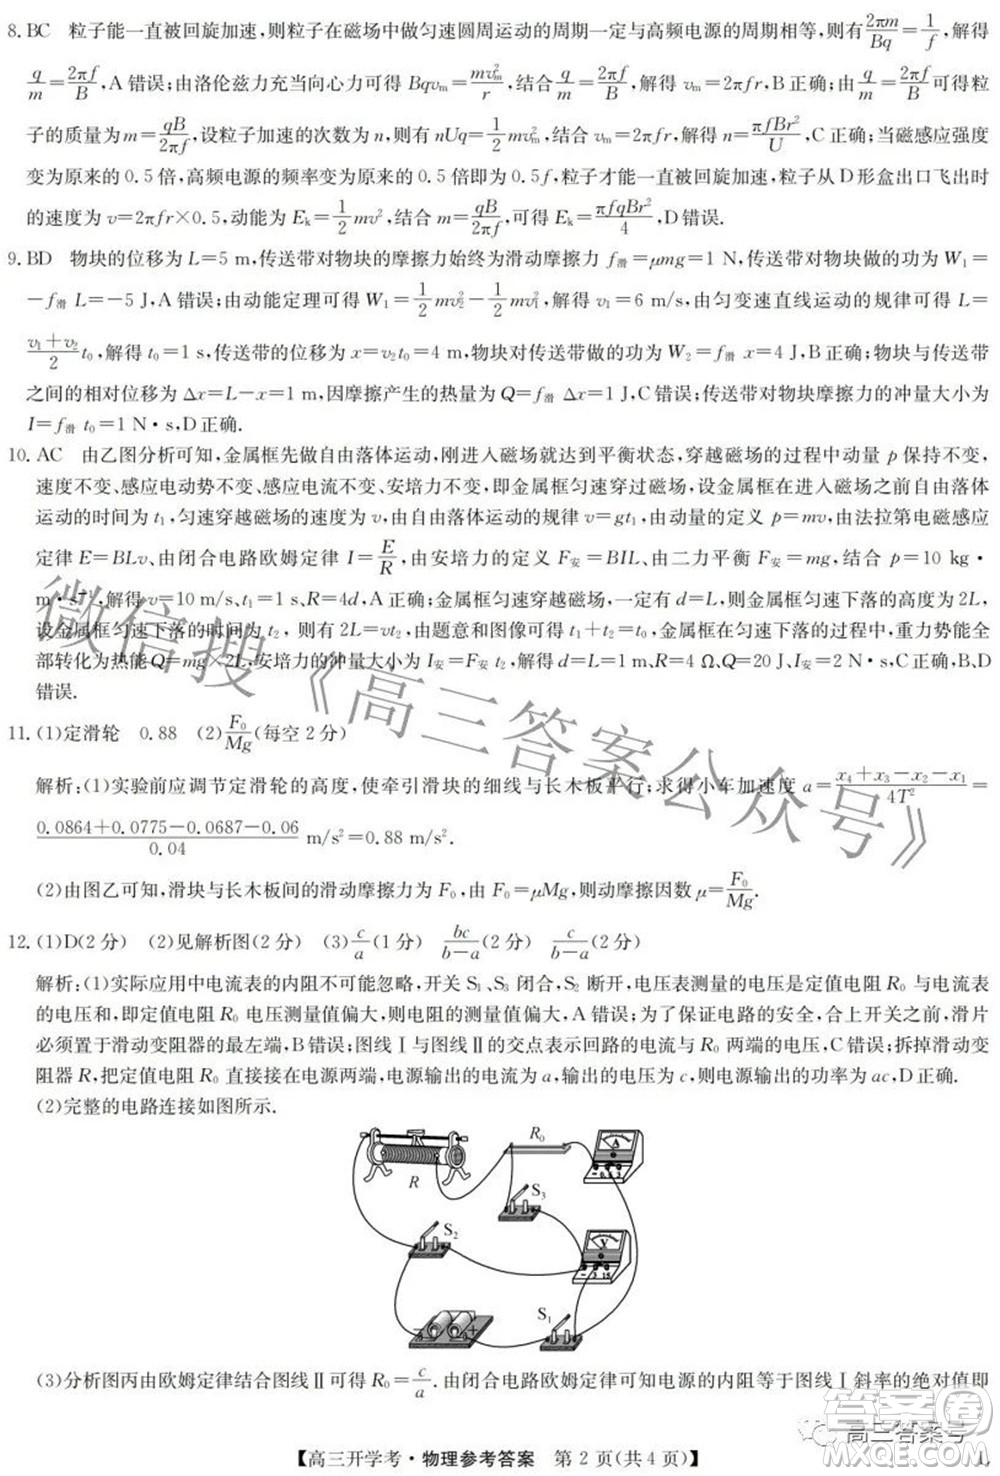 8. BC　粒子能一直被回旋加速,则粒子在磁场中做匀速圆周运动的周期一定与高频电源的周期相等,则有 2πm/Bq = 1/f ,解得
q/m = 2πf/B ,A 错误;由洛伦兹力充当向心力可得 Bqvₘ = mvₘ²/r ,结合 q/m = 2πf/B ,解得 vₘ=2πfr,B 正确;由 q/m = 2πf/B 可得粒
子的质量为 m = qB/2πf ,设粒子加速的次数为 n,则有 nUq = 1/2 mvₘ² ,结合 vₘ=2πfr,解得 n = πfBr²/U ,C 正确;当磁感应强度
变为原来的 0.5 倍,高频电源的频率变为原来的 0.5 倍即为 0.5f,粒子才能一直被回旋加速,粒子从 D 形盒出口飞出时
的速度为 v=2πfr×0.5,动能为 Eₖ = 1/2 mv² ,结合 m = qB/2πf ,可得 Eₖ = πfqBr²/4 ,D 错误.
9. BD　物块的位移为 L=5 m,传送带对物块的摩擦力始终为滑动摩擦力 f滑=μmg=1 N,传送带对物块做的功为 W₁=
−f滑 L=−5 J,A 错误;由动能定理可得 W₁ = 1/2 mv₂² − 1/2 mv₁² ,解得 v₁=6 m/s,由匀变速直线运动的规律可得 L=
(v₁+v₂)/2 t₀,解得 t₀=1 s,传送带的位移为 x=v₂t₀=4 m,物块对传送带做的功为 W₂=f滑 x=4 J,B 正确;物块与传送带
之间的相对位移为 Δx=L−x=1 m,因摩擦产生的热量为 Q=f滑 Δx=1 J,C 错误;传送带对物块摩擦力的冲量大小为
I=f滑 t₀=1 N·s,D 正确.
10. AC　由乙图分析可知,金属框先做自由落体运动,刚进入磁场就达到平衡状态,穿越磁场的过程中动量 p 保持不变,
速度不变、感应电动势不变、感应电流不变、安培力不变,即金属框匀速穿过磁场,设金属框在进入磁场之前自由落体
运动的时间为 t₁,匀速穿越磁场的速度为 v,由自由落体运动的规律 v=gt₁,由动量的定义 p=mv,由法拉第电磁感应
定律 E=BLv、由闭合电路欧姆定律 I = E/R ,由安培力的定义 F安=BIL、由二力平衡 F安=mg,结合 p=10 kg·
m·s⁻¹,解得 v=10 m/s、t₁=1 s、R=4d,A 正确;金属框匀速穿越磁场,一定有 d=L,则金属框匀速下落的高度为 2L,
设金属框匀速下落的时间为 t₂,则有 2L=vt₂,由题意和图像可得 t₁+t₂=t₀;金属框在匀速下落的过程中,重力势能全
部转化为热能 Q=mg×2L、安培力的冲量大小为 I安=F安 t₂,解得 d=L、R=4 Ω、Q=20 J、I安=2 N·s,C 正确,B、D
错误.
11. (1)定滑轮　0.88　(2) F₀/Mg (每空 2 分)
解析:(1)实验前应调节定滑轮的高度,使牵引滑块的细线与长木板平行;求得小车加速度 a = (x₄+x₃−x₂−x₁)/4T² =
(0.0864+0.0775−0.0687−0.06)/0.04 m/s²=0.88 m/s².
(2)由图乙可知,滑块与长木板间的滑动摩擦力为 F₀,由 F₀=μMg,则动摩擦因数 μ = F₀/Mg .
12. (1)D(2 分)　(2)见解析图(2 分)　(3) c/a (1 分)　bc/(b−a) (2 分)　c/(b−a) (2 分)
解析:(1)实际应用中电流表的内阻不可能忽略,开关 S₁、S₃ 闭合,S₂ 断开,电压表测量的电压是定值电阻 R₀ 与电流表
的电压和,即定值电阻 R₀ 电压测量值偏大,则电阻的测量值偏大,A 错误;为了保证电路的安全,合上开关之前,滑片
必须置于滑动变阻器的最左端,B 错误;图线Ⅰ与图线Ⅱ的交点表示回路的电流与 R₀ 两端的电压,C 错误;拆掉滑动变
阻器 R,把定值电阻 R₀ 直接接在电源两端,电源输出的电流为 a,输出的电压为 c,则电源输出的功率为 ac,D 正确.
(2)完整的电路连接如图所示.
R
R₀
A
− 0.6 3
S₃
S₂
V
− 3 15
S₁
− +
(3)分析图丙由欧姆定律结合图线Ⅱ可得 R₀ = c/a .由闭合电路欧姆定律可知电源的内阻等于图线Ⅰ斜率的绝对值即
【高三开学考·物理参考答案　第 2 页(共 4 页)】
L
微信搜《高三答案公众号》
高三答案号
答案圈